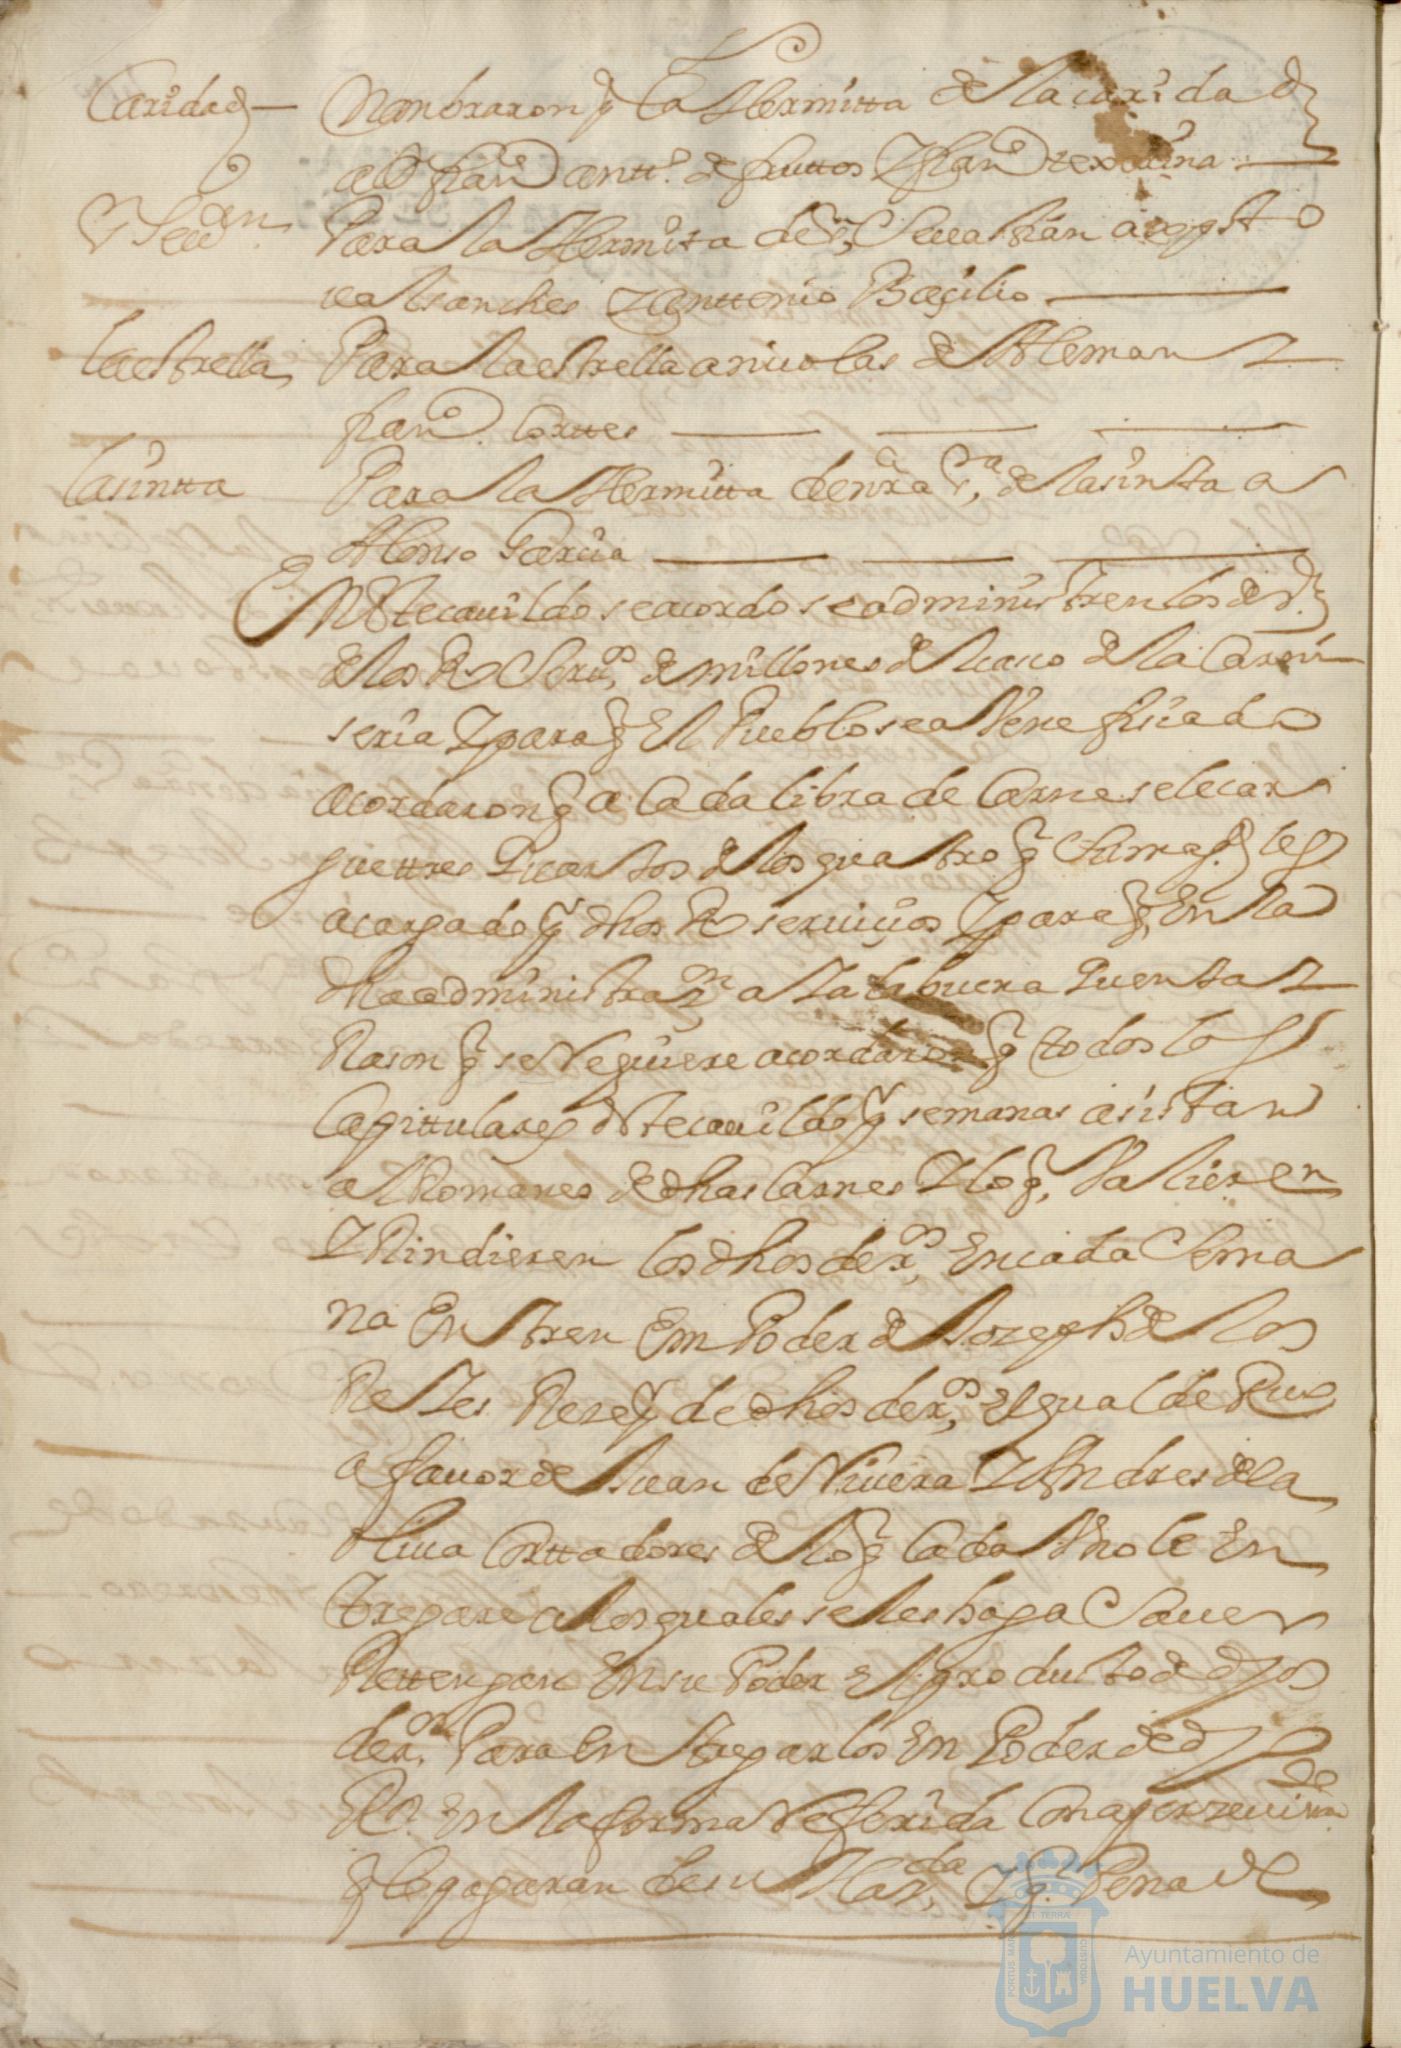 Caridad — Nombraron q la Hermitta de la carida d
a D fran^co antt^o de fruttos Y fran^co
S Seu^an Para la Hermita de S^n Seuastian a
de a Sanches Y Anttonio Baçilio
La estrella Para la estrella a nicolas de Aleman Y
fran^co Corttes
la sintta Para la Hermitta de nra S^ra de la sinta a
Alonso Garcia
En Este cauildo se acordo se administren los d^s
de los R^s Seru^os de millones del casco de la Carni
seria Y para q El Pueblo sea Venefiçiado
acordaron q a Cada libra de Carne se le car
gue ttres Quartos de los quatro q su mag^d les
a cargado p^r dhos R^s seruiçios Y para q En la
dha administra^on aya la buena Quenta Y
Rason q se Requiere acordaron q todos los
Capittulares deste cauildo p^r semanas asistan
al Romaneo de dhas Carnes Y lo q Valieren
Y Rindieren los dhos der^os En cada Sema
na Entren Em Poder de Joseph de los
Reyes Rezep^r de dhos der^os, El qual de Rue
a fauor de Juan de Riuera Y Andres de la
Oliua Corttadores de lo q Cada Vno le En
tregare a los quales se les haga Sauer
Rettengan En su Poder El producto de dhos
der^os Para Entregarlos En Poder de dho
R^r En la forma Referida Con aperzeuim^to de
q lo pagaran de su Haz^da Y p^r Pena de
Ayuntamiento de
HUELVA